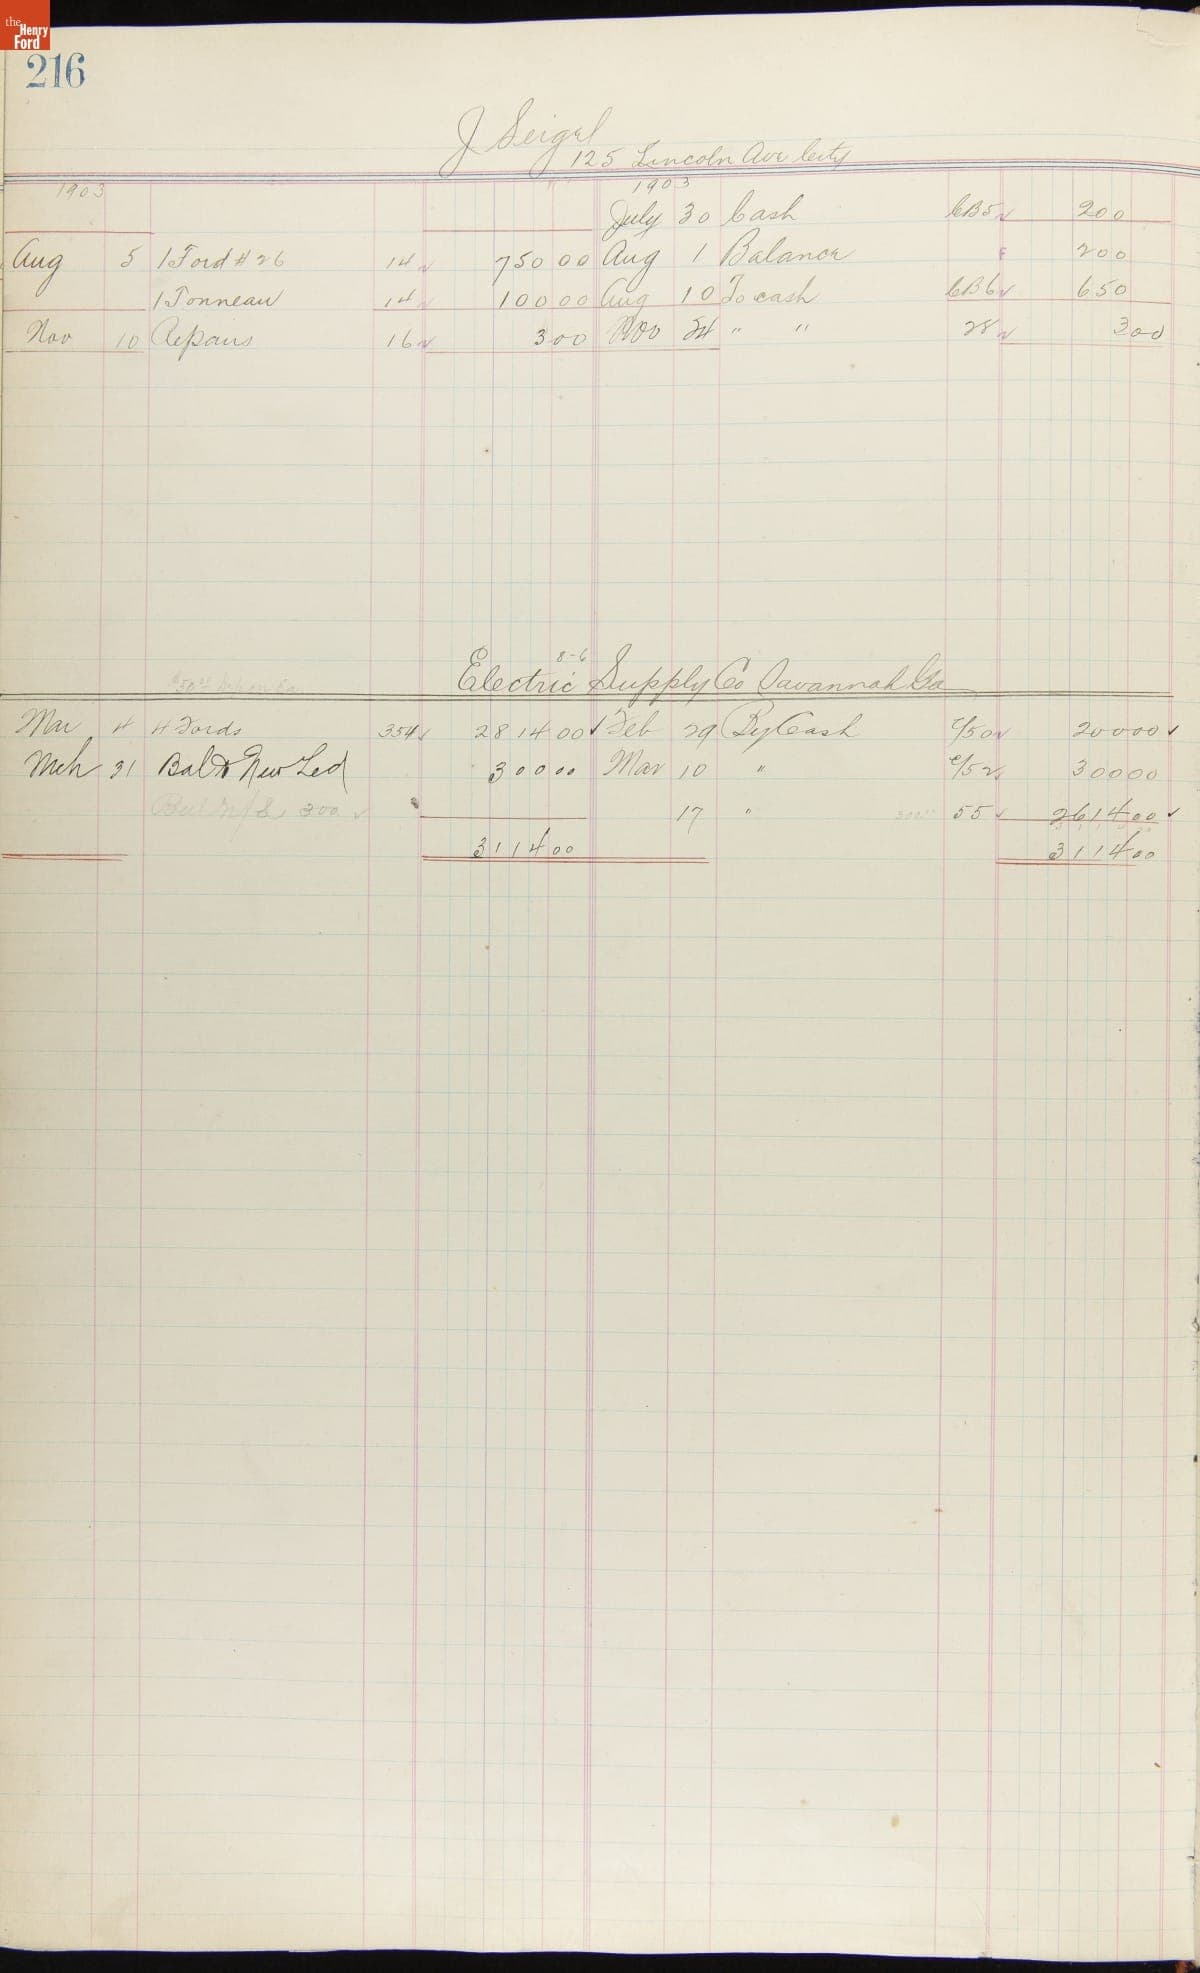 the Henry Ford
216
J Seigel
125 Lincoln Ave City
1903 1903
July 30 Cash CB5 200
Aug 5 1 Ford # 26 14 750 00 Aug 1 Balance 200
1 Tonneau 14 100 00 Aug 10 To cash CB6 650
Nov 10 Repairs 16 3 00 Nov 24 " " 28 3 00
8-6
Electric Supply Co Savannah Ga
Mar 4 4 Fords 354 2814 00 Feb 29 By Cash C/50 200 00
Mch 31 Bal to New Led 300 00 Mar 10 " C/52 300 00
300 17 " 55 2614 00
3114 00 3114 00